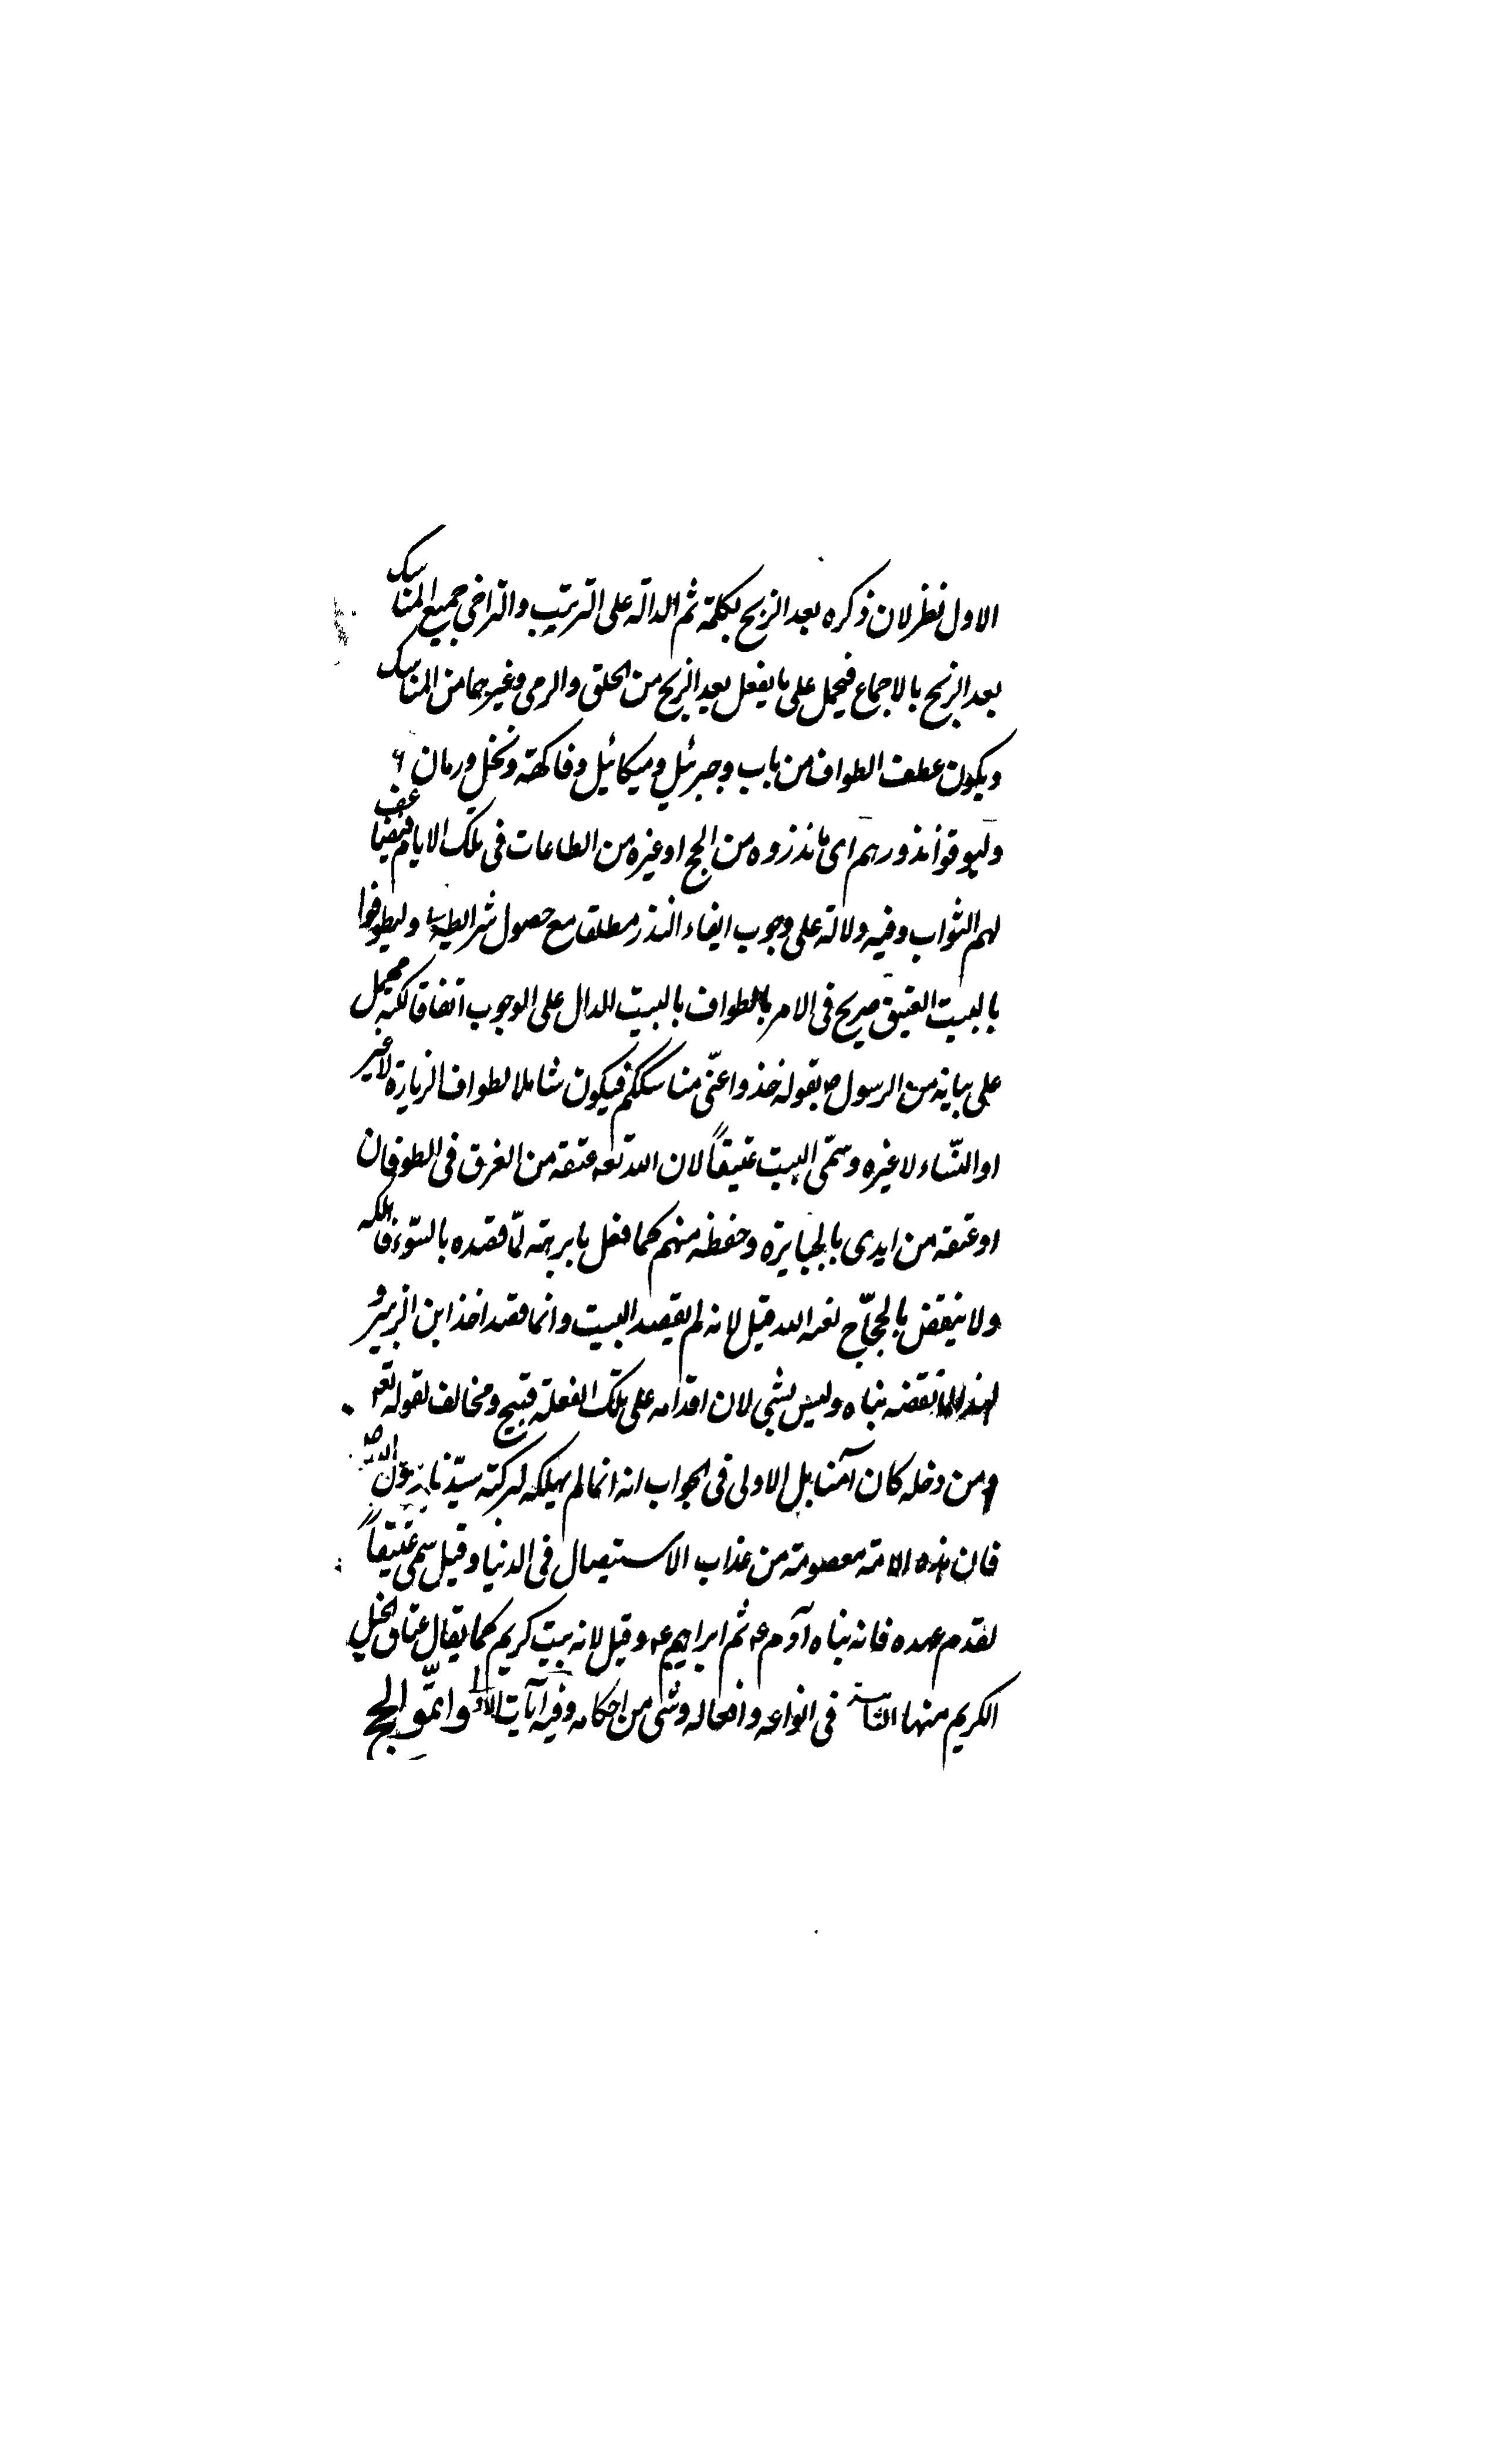 الاول نظر لان ذكره بعد الذبح بكلمة ثم الدالة على الترتيب والتراخى جميع المناسك
بعد الذبح بالاجماع فيحمل على ما يفعل بعد الذبح من الحلق والرمى وغيرهما من المناسك
ويكون عطف الطواف من باب وجبرئيل وميكائيل وفاكهة ونخل ورمان
وليوفوا نذورهم اى ما نذروه من الحج او غيره من الطاعات فى تلك الايام فيضاعف
لهم الثواب وفيه دلالة على وجوب ايفاء النذر مطلقا مع حصول شرايطه وليطوفوا
بالبيت العتيق صريح فى الامر بالطواف بالبيت الدال على الوجوب اتفاقا لكنه مجمل
على بيانه من الرسول ص بقوله خذوا عنّى مناسككم فيكون شاملا لطواف الزيارة لا غير
او النّساء لا غيره وسمّى البيت عتيقاً لان الله تعه عتقه من الغرق فى الطوفان
او عتقه من ايدى بالجبابرة وحفظه منهم كما فعل بابرهه لمّا قصده بالسّوء فاهلكه
ولا ينتقض بالحجّاج لعنه الله قيل لانه لم يقصد البيت وانما قصد اخذ ابن الزبير و
لهذا لما نقضه بناه وليس بشى لان اقدامه على تلك الفعلة قبيح ومخالف لقوله تعه
ومن دخله كان آمنا بل الاولى فى الجواب انه انما لم يهلكه لبركة سيّدنا رسول الله ص
فان هذه الامة معصومة من عذاب الاستيصال فى الدنيا وقيل سمى عتيقاً
لقدم عهده فانه بناه آدم ع ثم ابراهيم ع وقيل لانه بيت كريم كما يقال عتاق الخيل
الكريم منها فى انواعه وافعاله وشى من احكامه وفيه آيات الاولى واتمّوا الحج